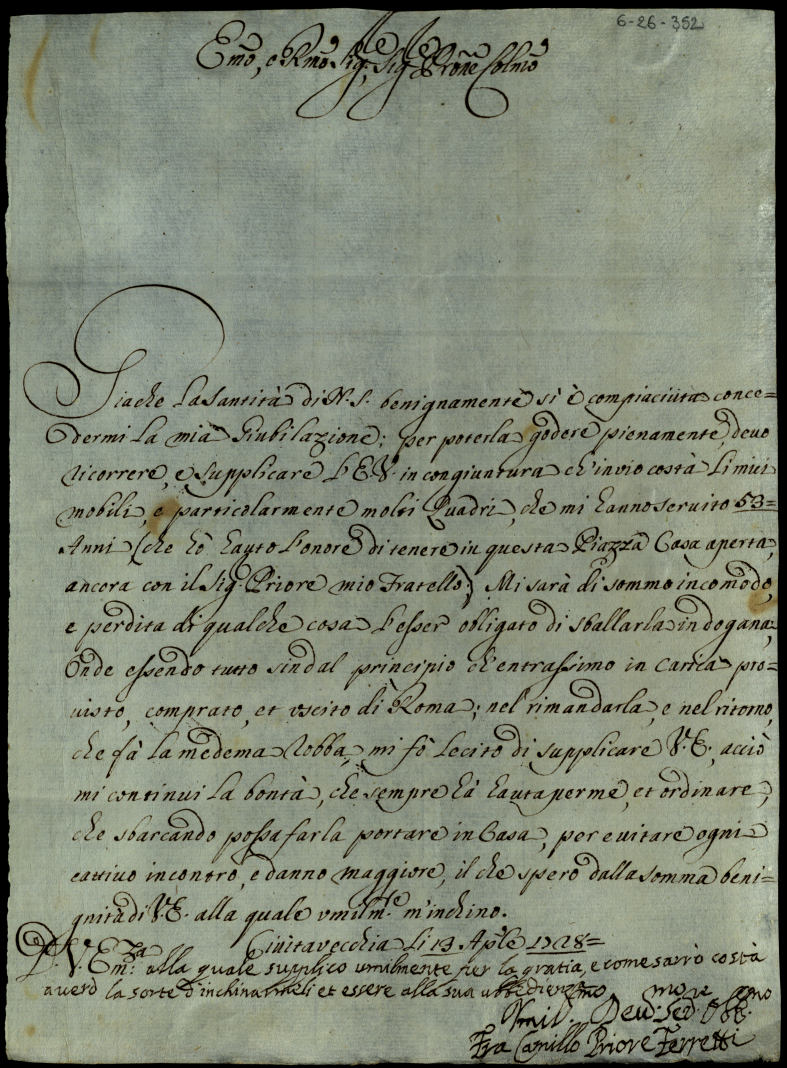 6-26-352
Em̃o, e Rm̃o Sig.re Sig.re Prone Colmo
Giache La Santità di N.S. benignamente si è compiaciuta conce=
dermi La mia Giubilazione; per poterla godere pienamente, devo
ricorrere, e supplicare L'E.V. in congiuntura ch'invio costà Li miei
mobili, e particolarmente molti Quadri, che mi hanno servito 53=
Anni (che hò hauto L'onore di tenere in questa Piazza Casa aperta,
ancora con il Sig.r Priore mio Fratello) Mi sarà di sommo incomodo,
e perdita di qualche cosa L'esser obligato di sballarla in dogana.
Onde essendo tutto sin dal principio ch'entrassimo in Carica pro=
visto, comprato, et uscito di Roma; nel rimandarla, e nel ritorno,
che fà La medema Robba, mi fò Lecito di supplicare V.E., acciò
mi continui La bontà, che sempre hà hauta per me, et ordinare,
che sbarcando possa farla portare in Casa, per evitare ogni
cattivo incontro, e danno maggiore, il che spero dalla somma beni=
gnità di V.E. alla quale umilm.te m'inchino.
Civitavecchia Li 13 Ap.le 1728=
D. V. Em.za alla quale supplico umilmente per la gratia, e come sarrò costà
averò la sorte d'inchinarmeli et essere alla sua ubbedienza
Umil.mo Dev.mo Ser.re Obb.mo
Fra Camillo Priore Ferretti